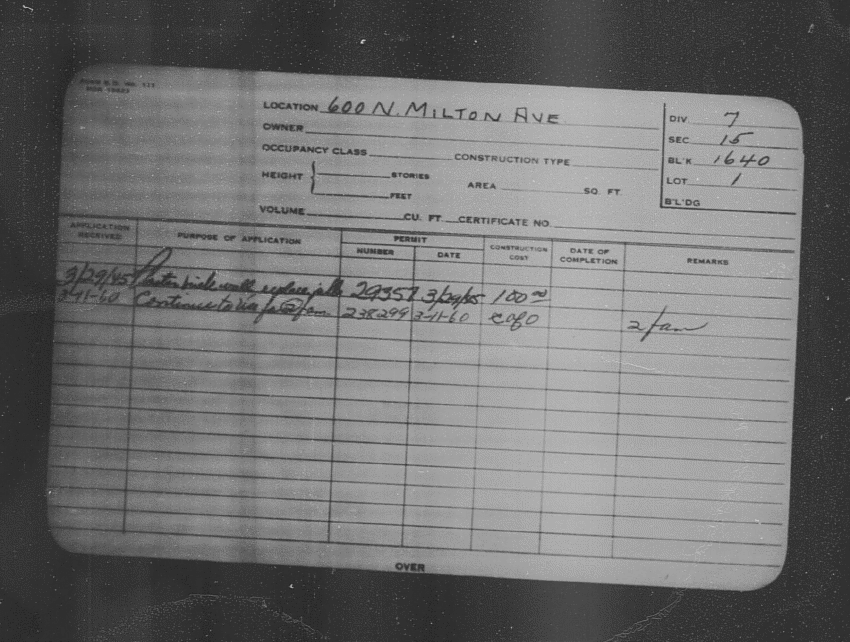 LOCATION 600 N. MILTON AVE
OWNER
OCCUPANCY CLASS CONSTRUCTION TYPE
HEIGHT STORIES
FEET
AREA SQ. FT.
VOLUME CU. FT. CERTIFICATE NO.
DIV 7
SEC 15
BL'K 1640
LOT 1
B'L'DG
APPLICATION RECEIVED PURPOSE OF APPLICATION PERMIT NUMBER DATE CONSTRUCTION COST DATE OF COMPLETION REMARKS
3/29/45 wall replace 29357 3/29/45 100.00
3-11-60 Continue to use for 2 fam. 238299 3-11-60 cofo 2 fam
OVER